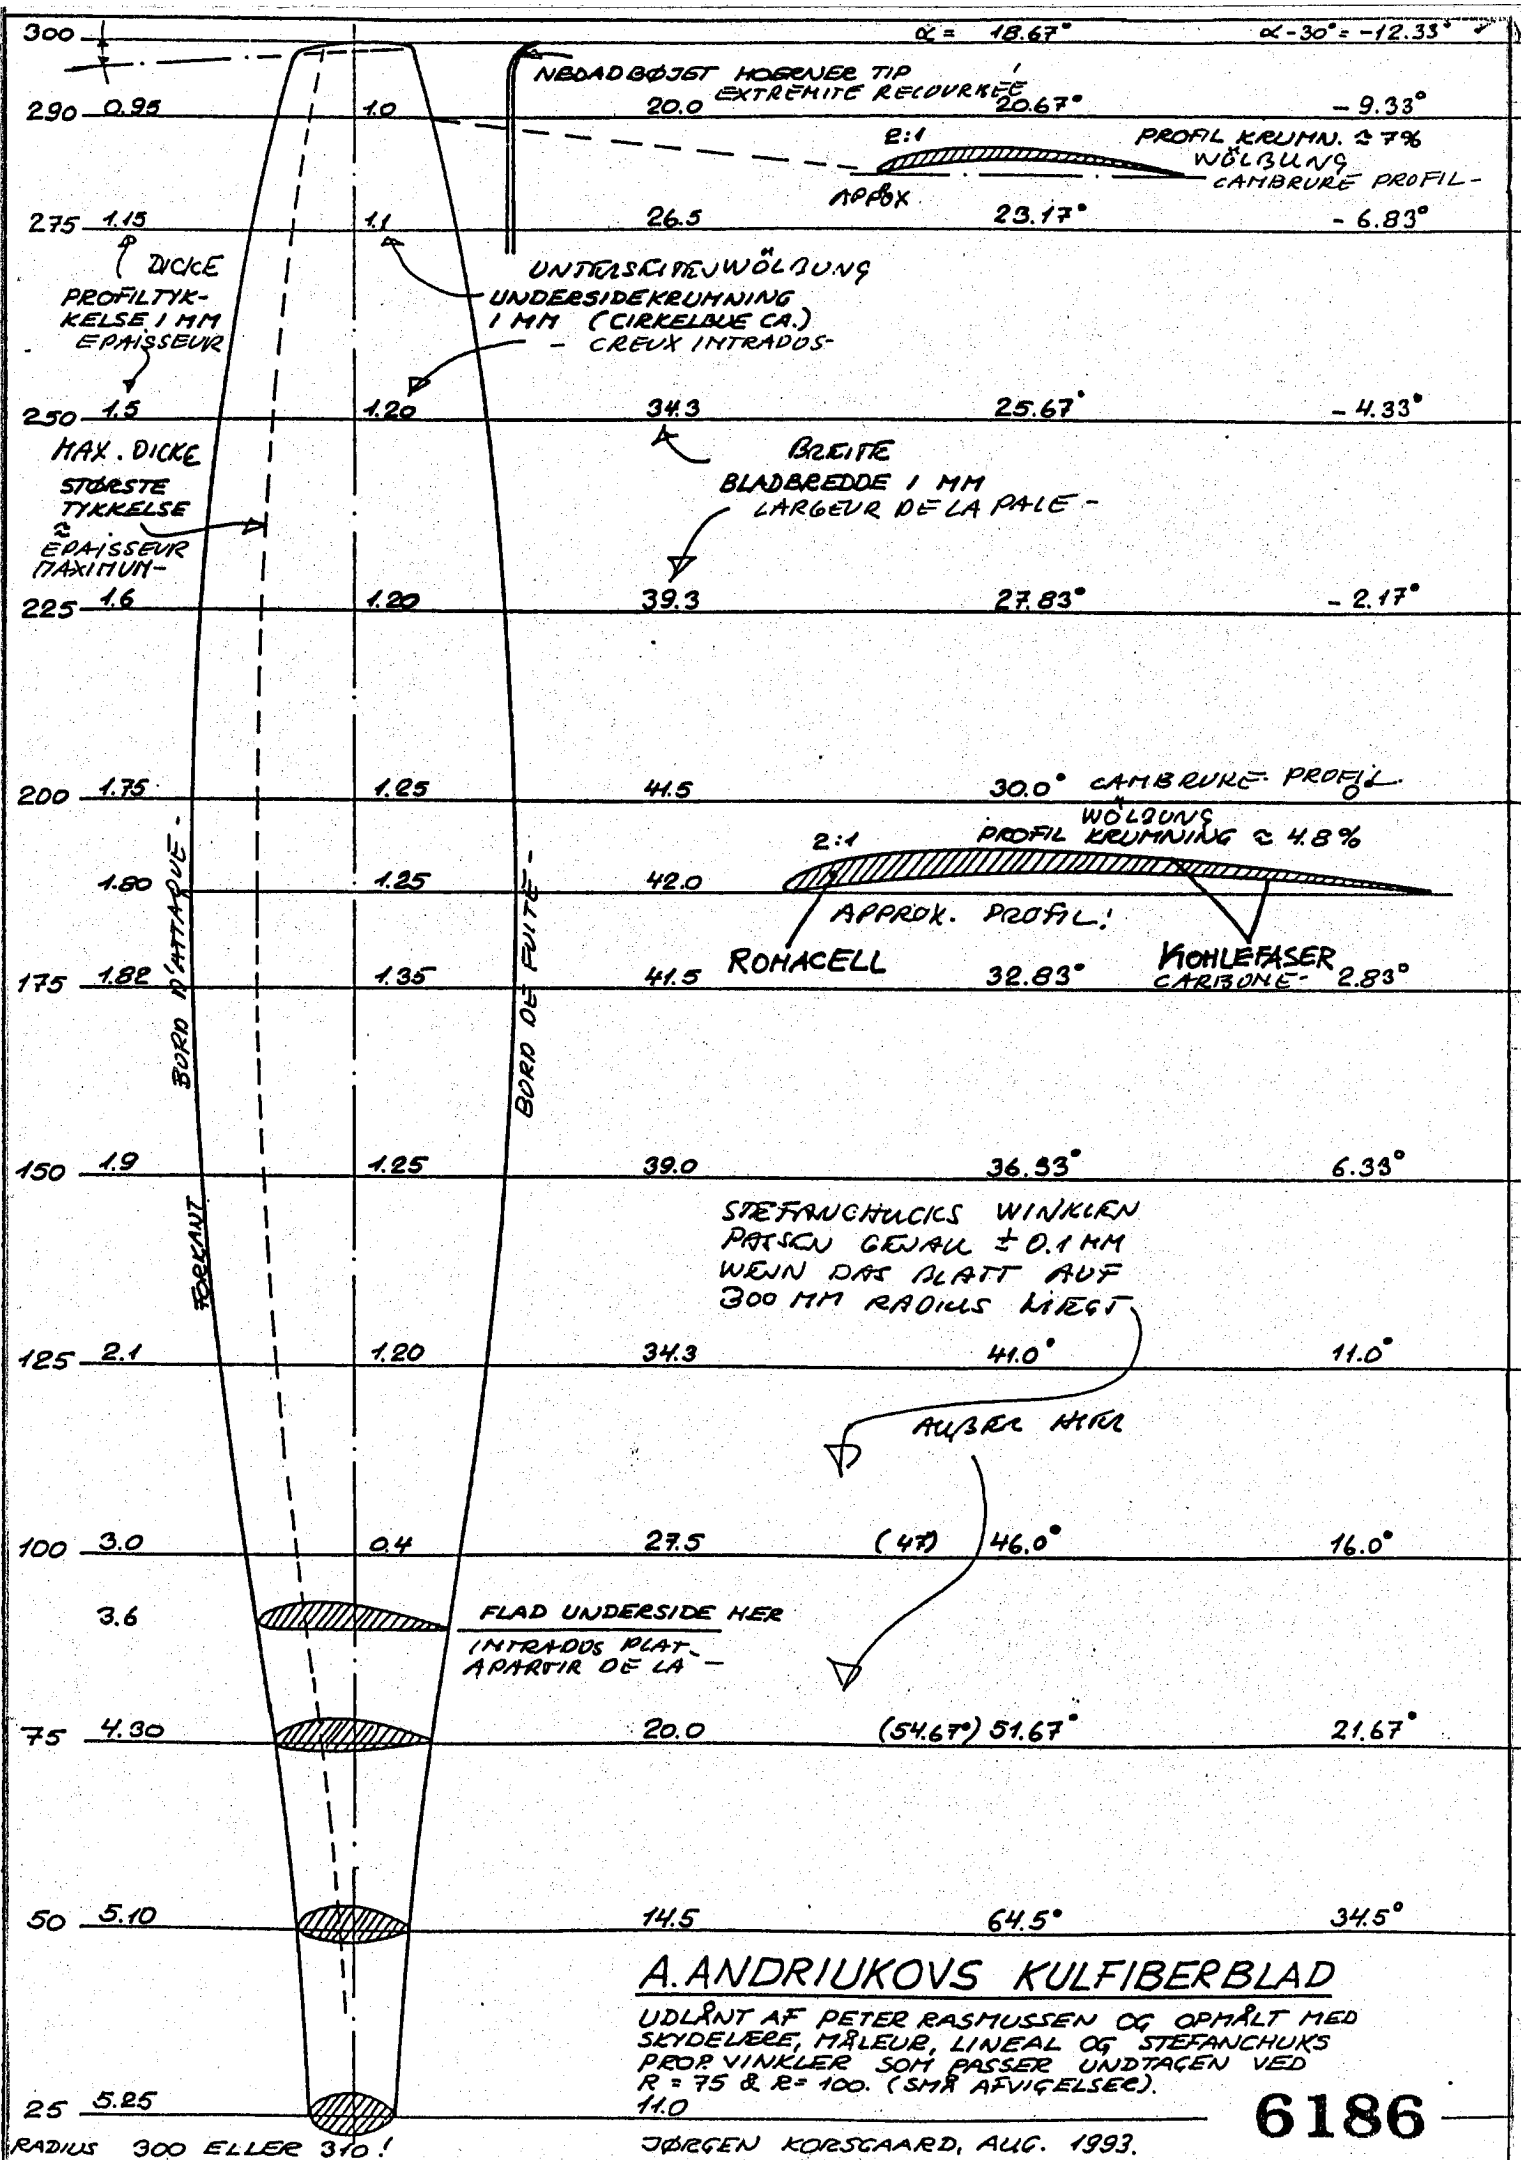 300 α = 18.67° α-30° = -12.33°
NEDADBØJET HOERNER TIP
EXTREMITE RECOURKÉE
290 0.95 1.0 20.0 20.67° - 9.33°
2:1 PROFIL KRUMN. ≈ 7%
WÖLBUNG
CAMBRURE PROFIL-
APPOX
275 1.15 1.1 26.5 23.17° - 6.83°
DICKE
PROFILTYK-
KELSE I MM
EPAISSEUR
UNTERSEITENWÖLBUNG
UNDERSIDEKRUMNING
I MM (CIRKELBUE CA.)
- CREUX INTRADOS-
250 1.5 1.20 34.3 25.67° - 4.33°
MAX. DICKE
STØRSTE
TYKKELSE
≈
EPAISSEUR
MAXIMUM-
BREITE
BLADBREDDE I MM
LARGEUR DE LA PALE -
225 1.6 1.20 39.3 27.83° - 2.17°
200 1.75 1.25 41.5 30.0° CAMBRURE PROFIL 0
WÖLBUNG
2:1 PROFIL KRUMNING ≈ 4.8%
1.80 1.25 42.0
APPROX. PROFIL!
ROHACELL KOHLEFASER
CARBONE-
175 1.82 1.35 41.5 32.83° 2.83°
BORD D'ATTAQUE -
BORD DE FUITE -
150 1.9 1.25 39.0 36.33° 6.33°
FORKANT
STEFANCHUCKS WINKLEN
PASSEN GENAU ± 0.1 MM
WENN DAS BLATT AUF
300 MM RADIUS LIEGT
125 2.1 1.20 34.3 41.0° 11.0°
AUßER HIER
100 3.0 0.4 27.5 (47) 46.0° 16.0°
3.6 FLAD UNDERSIDE HER
INTRADOS PLAT-
APARTIR DE LA -
75 4.30 20.0 (54.67°) 51.67° 21.67°
50 5.10 14.5 64.5° 34.5°
A. ANDRIUKOVS KULFIBERBLAD
UDLÅNT AF PETER RASMUSSEN OG OPMÅLT MED
SKYDELÆRE, MÅLEUR, LINEAL OG STEFANCHUKS
PROP. VINKLER SOM PASSER UNDTAGEN VED
R = 75 & R= 100. (SMÅ AFVIGELSER).
25 5.25 11.0
6186
RADIUS 300 ELLER 310!
JØRGEN KORSGAARD, AUG. 1993.